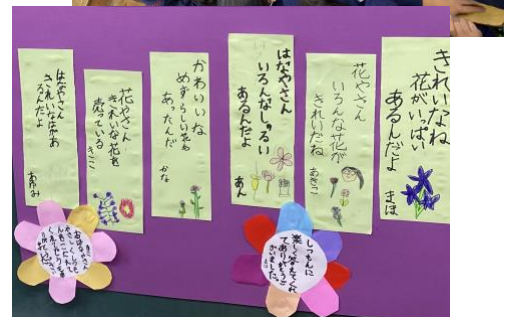 きれいなね
花がいっぱい
あるんだよ
きほ
花やさん
いろんな花が
きれいだね
あきこ
はなやさん
いろんなしゅるい
あるんだよ
あん
かわいいな
めずらしい花も
あったんだ
かな
花やさん
きれいな花を
売っている
きこ
はなやさん
きれいなはなが
あるんだよ
あゆみ
しつもんに
楽しく答えてくれ
てありがとうご
ざいました。
おはなやさん